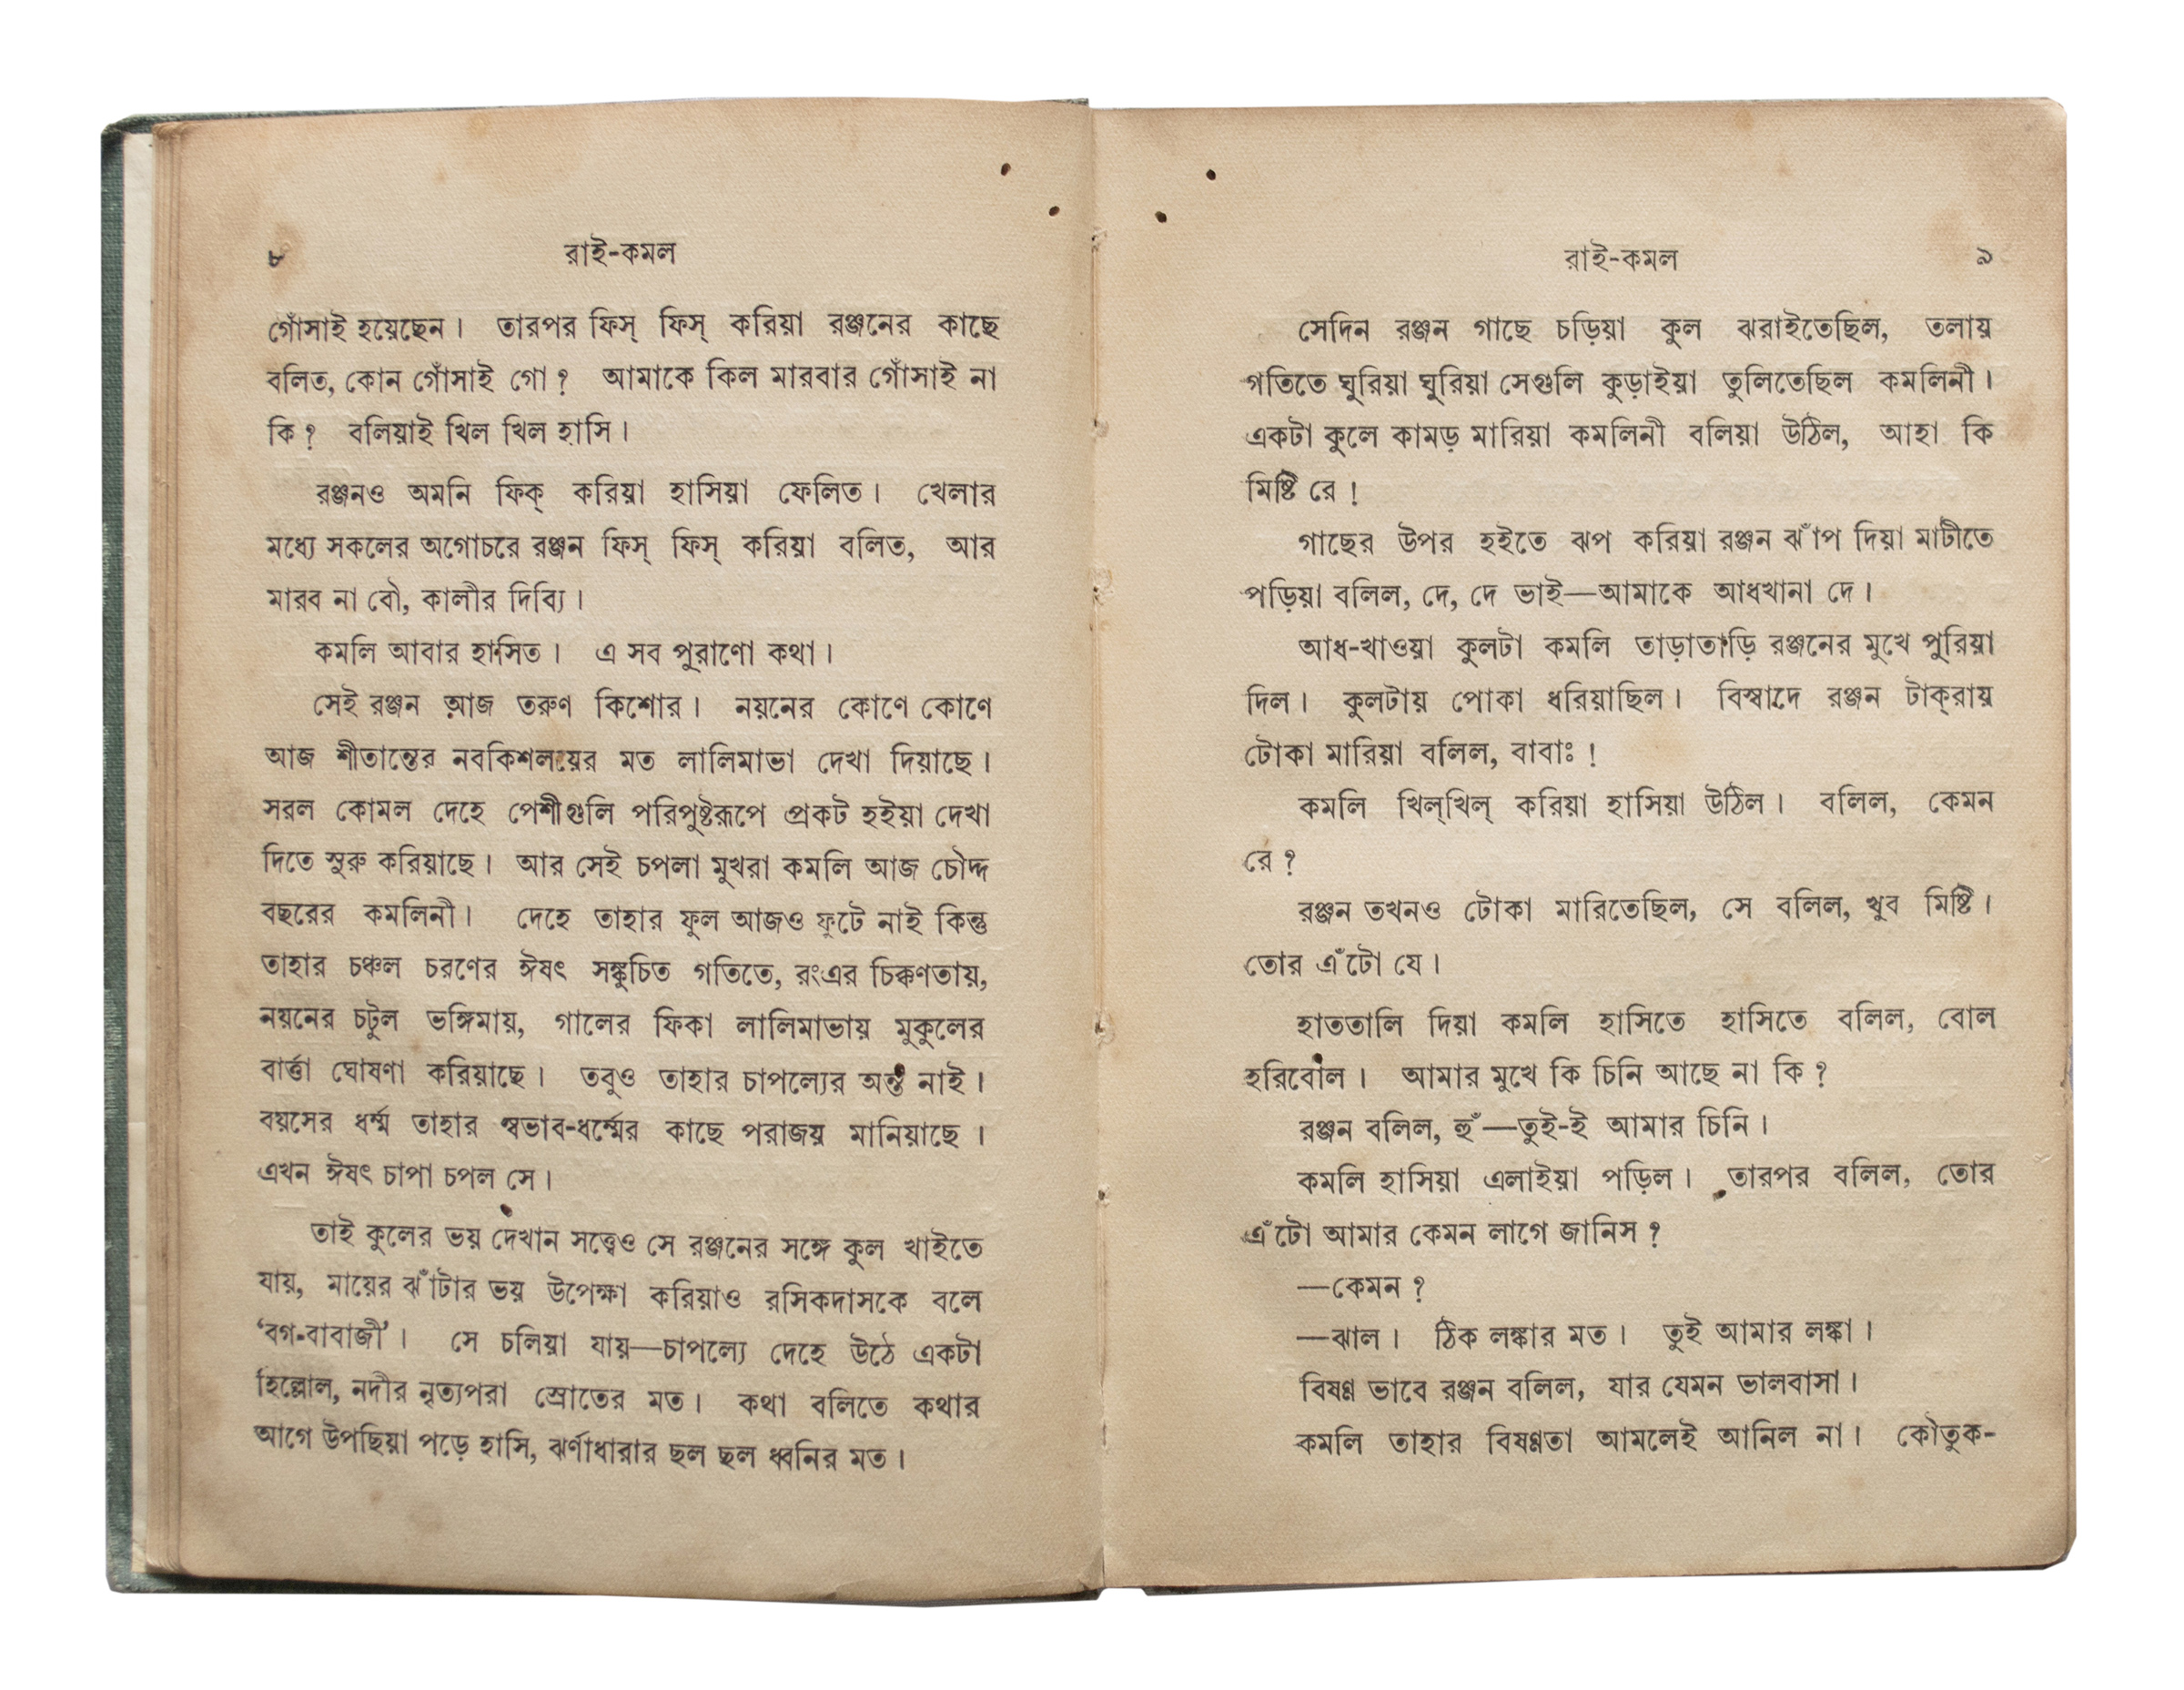 ৮
রাই-কমল
গোঁসাই হয়েছেন। তারপর ফিস্ ফিস্ করিয়া রঞ্জনের কাছে
বলিত, কোন গোঁসাই গো? আমাকে কিল মারবার গোঁসাই না
কি? বলিয়াই খিল খিল হাসি।
রঞ্জনও অমনি ফিক্ করিয়া হাসিয়া ফেলিত। খেলার
মধ্যে সকলের অগোচরে রঞ্জন ফিস্ ফিস্ করিয়া বলিত, আর
মারব না বৌ, কালীর দিব্যি।
কমলি আবার হাসিত। এ সব পুরাণো কথা।
সেই রঞ্জন আজ তরুণ কিশোর। নয়নের কোণে কোণে
আজ শীতান্তের নবকিশলয়ের মত লালিমাভা দেখা দিয়াছে।
সরল কোমল দেহে পেশীগুলি পরিপুষ্টরূপে প্রকট হইয়া দেখা
দিতে সুরু করিয়াছে। আর সেই চপলা মুখরা কমলি আজ চৌদ্দ
বছরের কমলিনী। দেহে তাহার ফুল আজও ফুটে নাই কিন্তু
তাহার চঞ্চল চরণের ঈষৎ সঙ্কুচিত গতিতে, রংএর চিক্কণতায়,
নয়নের চটুল ভঙ্গিমায়, গালের ফিকা লালিমাভায় মুকুলের
বার্ত্তা ঘোষণা করিয়াছে। তবুও তাহার চাপল্যের অন্ত নাই।
বয়সের ধর্ম্ম তাহার স্বভাব-ধর্ম্মের কাছে পরাজয় মানিয়াছে।
এখন ঈষৎ চাপা চপল সে।
তাই কুলের ভয় দেখান সত্ত্বেও সে রঞ্জনের সঙ্গে কুল খাইতে
যায়, মায়ের ঝাঁটার ভয় উপেক্ষা করিয়াও রসিকদাসকে বলে
‘বগ-বাবাজী’। সে চলিয়া যায়—চাপল্যে দেহে উঠে একটা
হিল্লোল, নদীর নৃত্যপরা স্রোতের মত। কথা বলিতে কথার
আগে উপছিয়া পড়ে হাসি, ঝর্ণাধারার ছল ছল ধ্বনির মত।
রাই-কমল
৯
সেদিন রঞ্জন গাছে চড়িয়া কুল ঝরাইতেছিল, তলায়
গতিতে ঘুরিয়া ঘুরিয়া সেগুলি কুড়াইয়া তুলিতেছিল কমলিনী।
একটা কুলে কামড় মারিয়া কমলিনী বলিয়া উঠিল, আহা কি
মিষ্টি রে!
গাছের উপর হইতে ঝপ করিয়া রঞ্জন ঝাঁপ দিয়া মাটীতে
পড়িয়া বলিল, দে, দে ভাই—আমাকে আধখানা দে।
আধ-খাওয়া কুলটা কমলি তাড়াতাড়ি রঞ্জনের মুখে পুরিয়া
দিল। কুলটায় পোকা ধরিয়াছিল। বিস্বাদে রঞ্জন টাক্‌রায়
টোকা মারিয়া বলিল, বাবাঃ!
কমলি খিল্‌খিল্ করিয়া হাসিয়া উঠিল। বলিল, কেমন
রে?
রঞ্জন তখনও টোকা মারিতেছিল, সে বলিল, খুব মিষ্টি।
তোর এঁটো যে।
হাততালি দিয়া কমলি হাসিতে হাসিতে বলিল, বোল
হরিবোল। আমার মুখে কি চিনি আছে না কি?
রঞ্জন বলিল, হুঁ—তুই-ই আমার চিনি।
কমলি হাসিয়া এলাইয়া পড়িল। তারপর বলিল, তোর
এঁটো আমার কেমন লাগে জানিস?
—কেমন?
—ঝাল। ঠিক লঙ্কার মত। তুই আমার লঙ্কা।
বিষণ্ণ ভাবে রঞ্জন বলিল, যার যেমন ভালবাসা।
কমলি তাহার বিষণ্ণতা আমলেই আনিল না। কৌতুক-